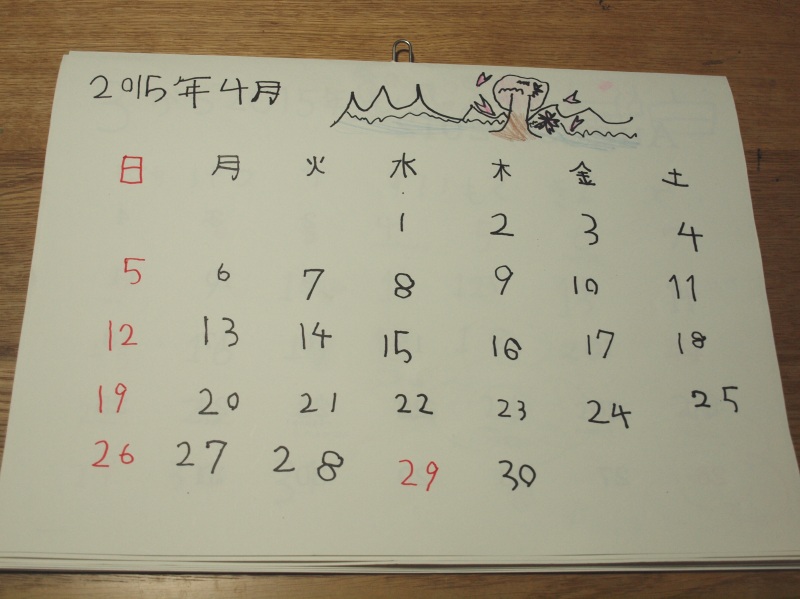 2015年4月
日 月 火 水 木 金 土
1 2 3 4
5 6 7 8 9 10 11
12 13 14 15 16 17 18
19 20 21 22 23 24 25
26 27 28 29 30